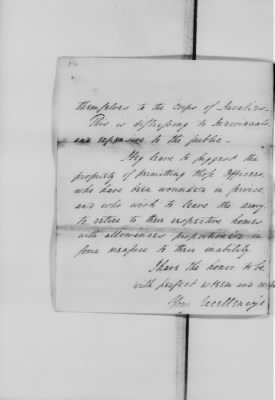 themselves to the corps of Invalids.
This is distressing to Individuals
and expensive to the public —
beg leave to suggest the
propriety of permitting those Officers,
who have been wounded in service,
and who wish to leave the army
to retire to their respective homes
with allowances proportioned in
some measure to their inability
I have the honor to be,
with perfect esteem and
Your Excellency's